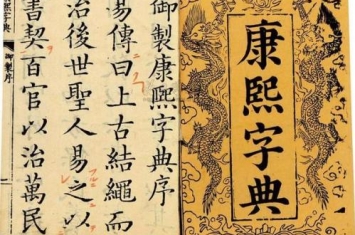 康熙字典
御製康熙字典序
易傳曰上古結繩而
治後世聖人易之以
書契百官以治萬民
熙字典
御製序